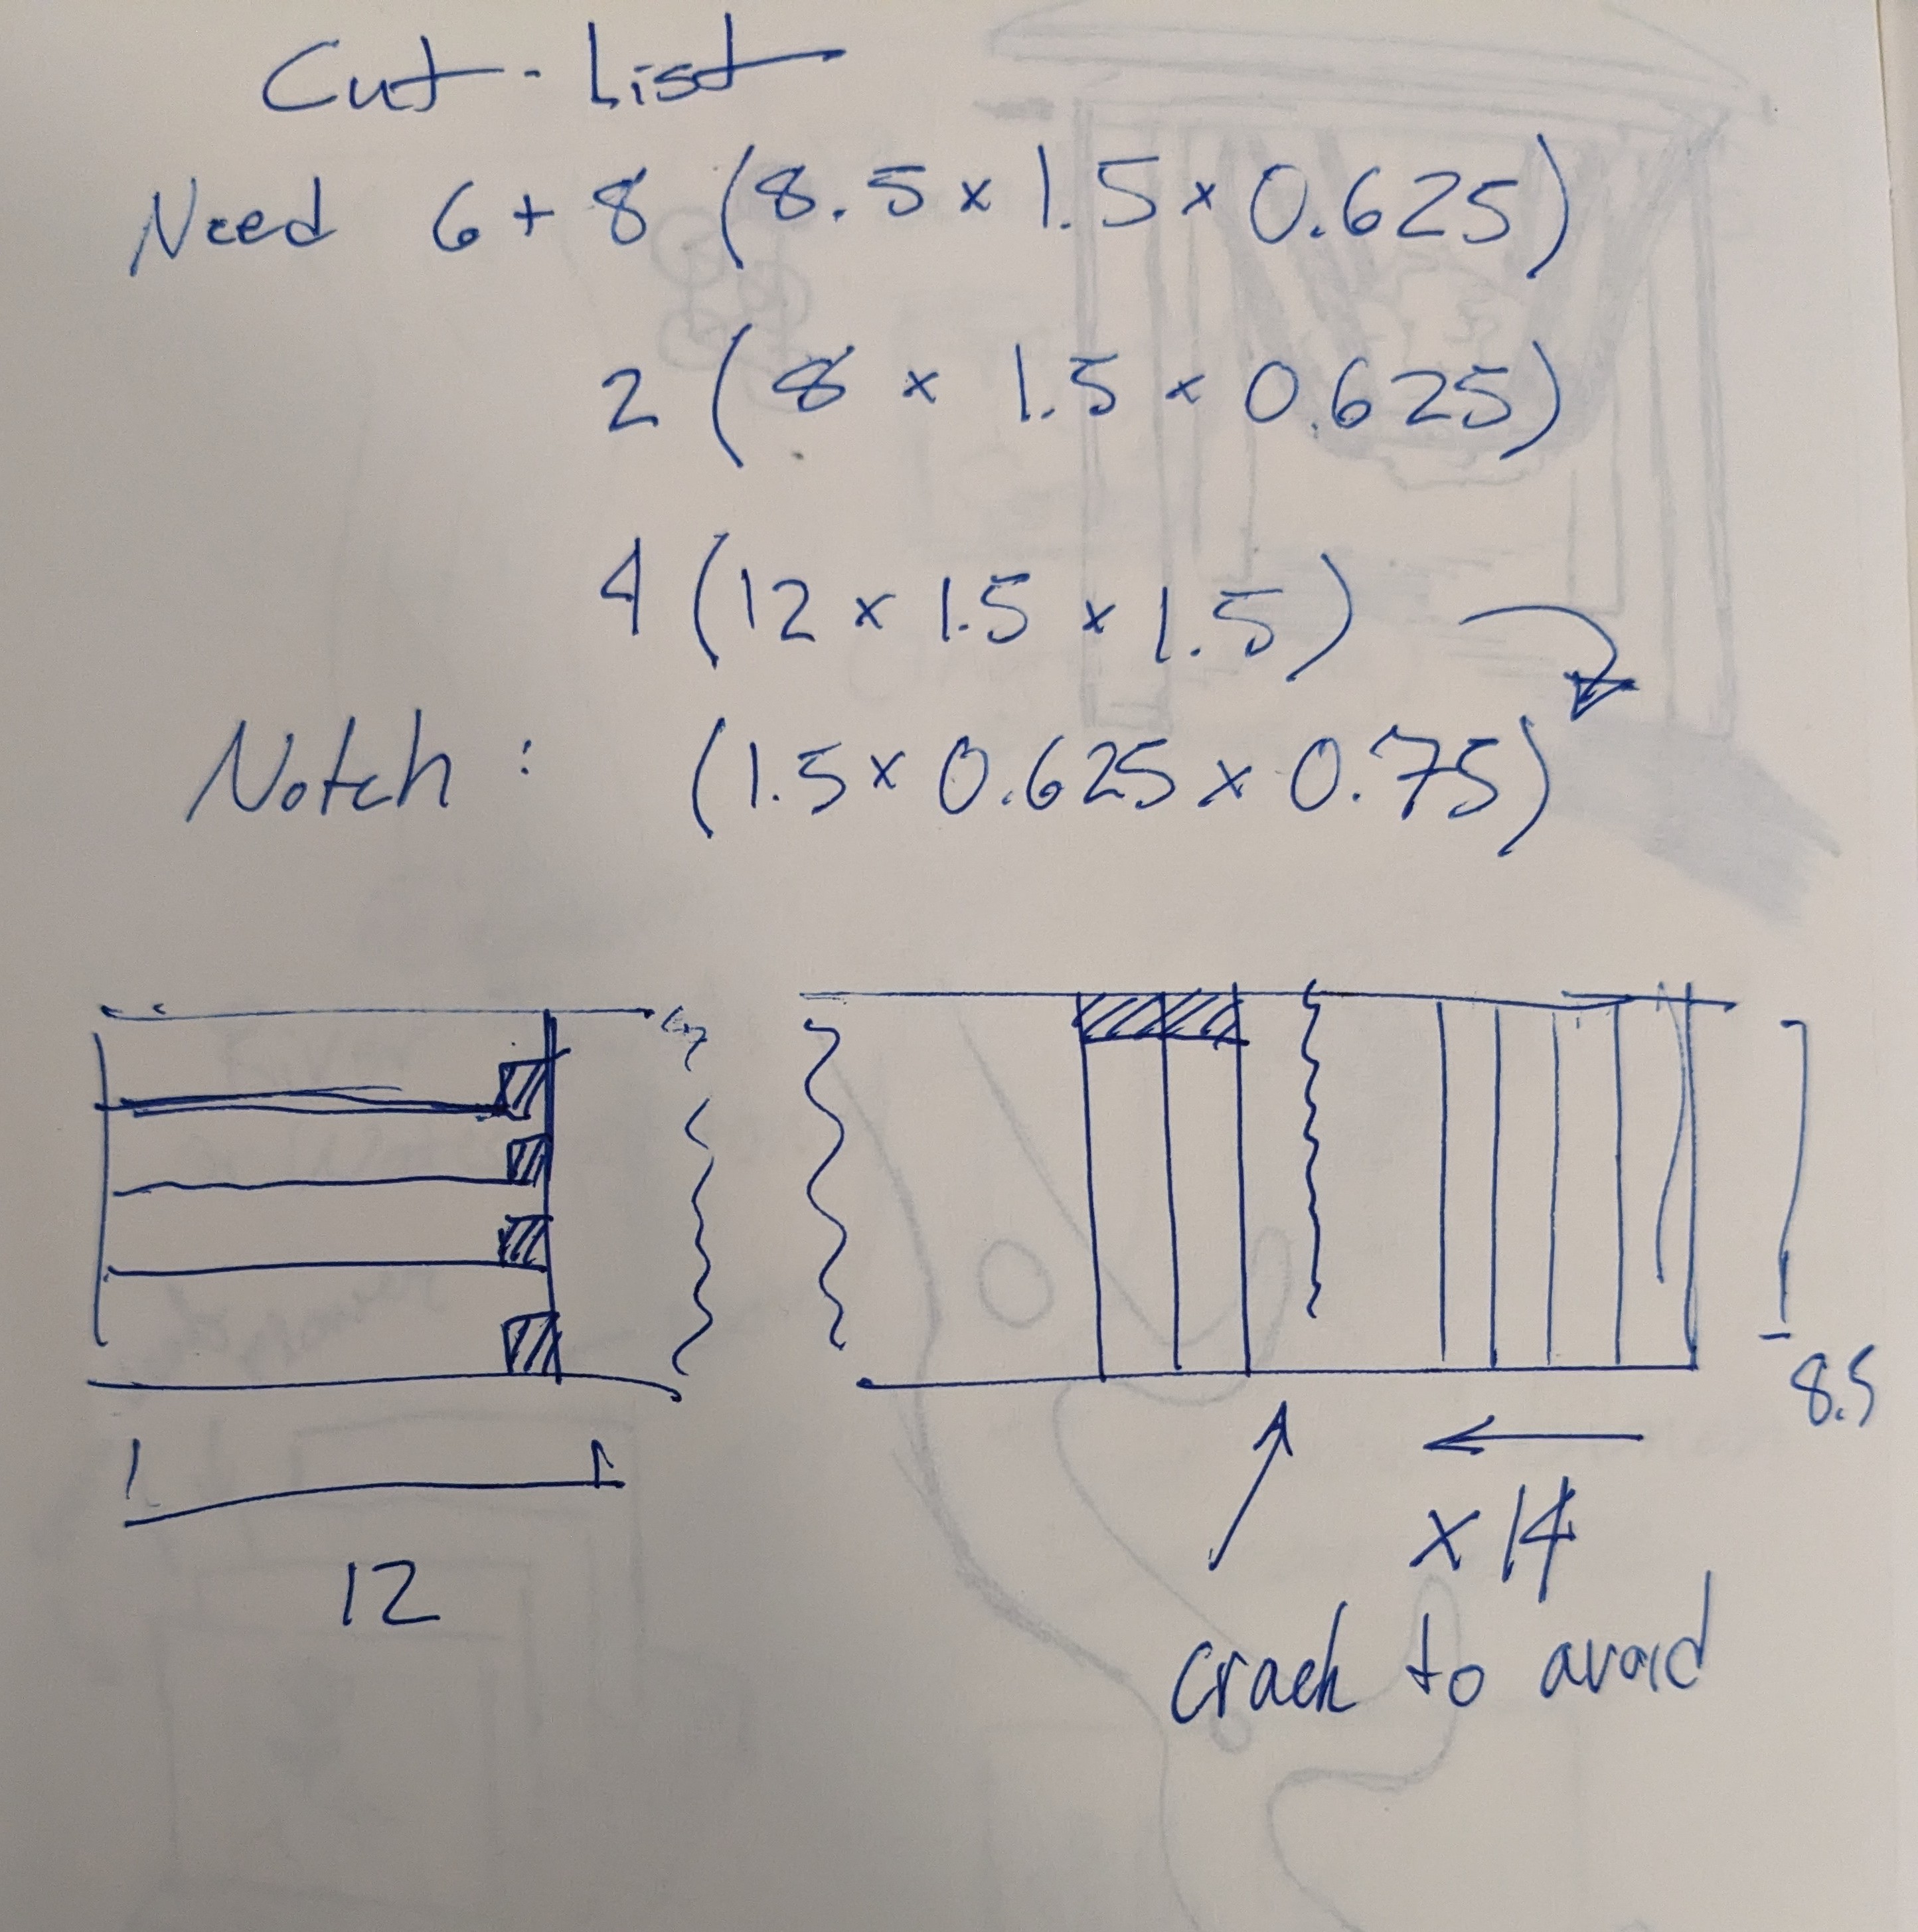 Cut-List
Need 6+8 (8.5 x 1.5 x 0.625)
2 (8 x 1.5 x 0.625)
4 (12 x 1.5 x 1.5)
Notch: (1.5 x 0.625 x 0.75)
8.5
x 14
12
crack to avoid